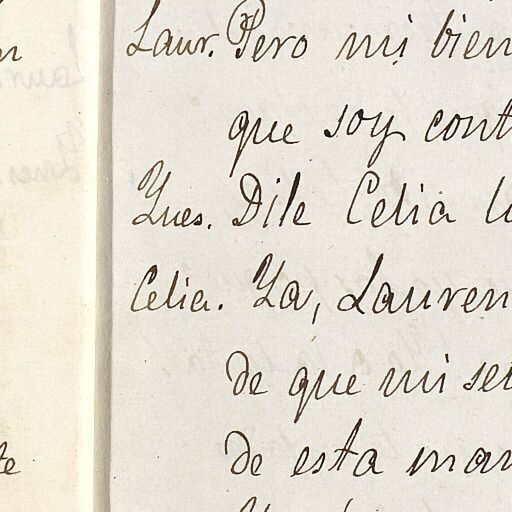 Laur. Pero mi bien
que soy cont
Ynes. Dile Celia lo
Celia. Ya, Lauren
de que mi señ
de esta man